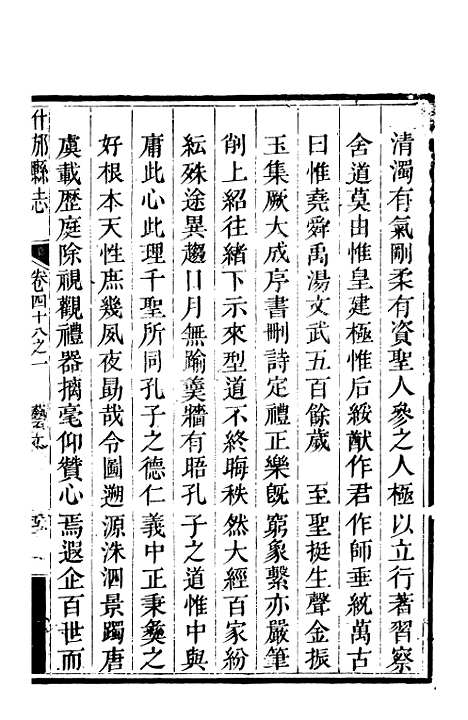 清濁有氣剛柔有資聖人參之人極以立行著習察
舍道莫由惟皇建極惟后綏猷作君作師垂統萬古
曰惟堯舜禹湯文武五百餘歲 至聖挺生聲金振
玉集厥大成序書刪詩定禮正樂旣窮象繫亦嚴筆
削上紹往緒下示來型道不終晦秩然大經百家紛
紜殊途異趨日月無踰羹牆有晤孔子之道惟中與
庸此心此理千聖所同孔子之德仁義中正秉彝之
好根本天性庶幾夙夜勗哉令圖遡源洙泗景躅唐
虞載歷庭除視觀禮器摛毫仰贊心焉遐企百世而
什邡縣志
卷四十八之一
藝文